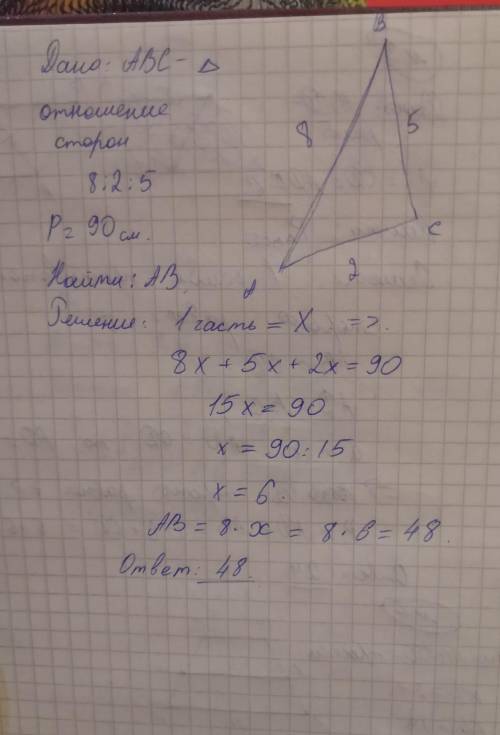 Дано: ABC - △
отношение
сторон
8:2:5
P = 90 см.
Найти: AB.
Решение: 1 часть = X =>.
8x + 5x + 2x = 90
15x = 90
x = 90:15
x = 6.
AB = 8 · x = 8 · 6 = 48.
Ответ: 48.
B
8
5
C
2
A